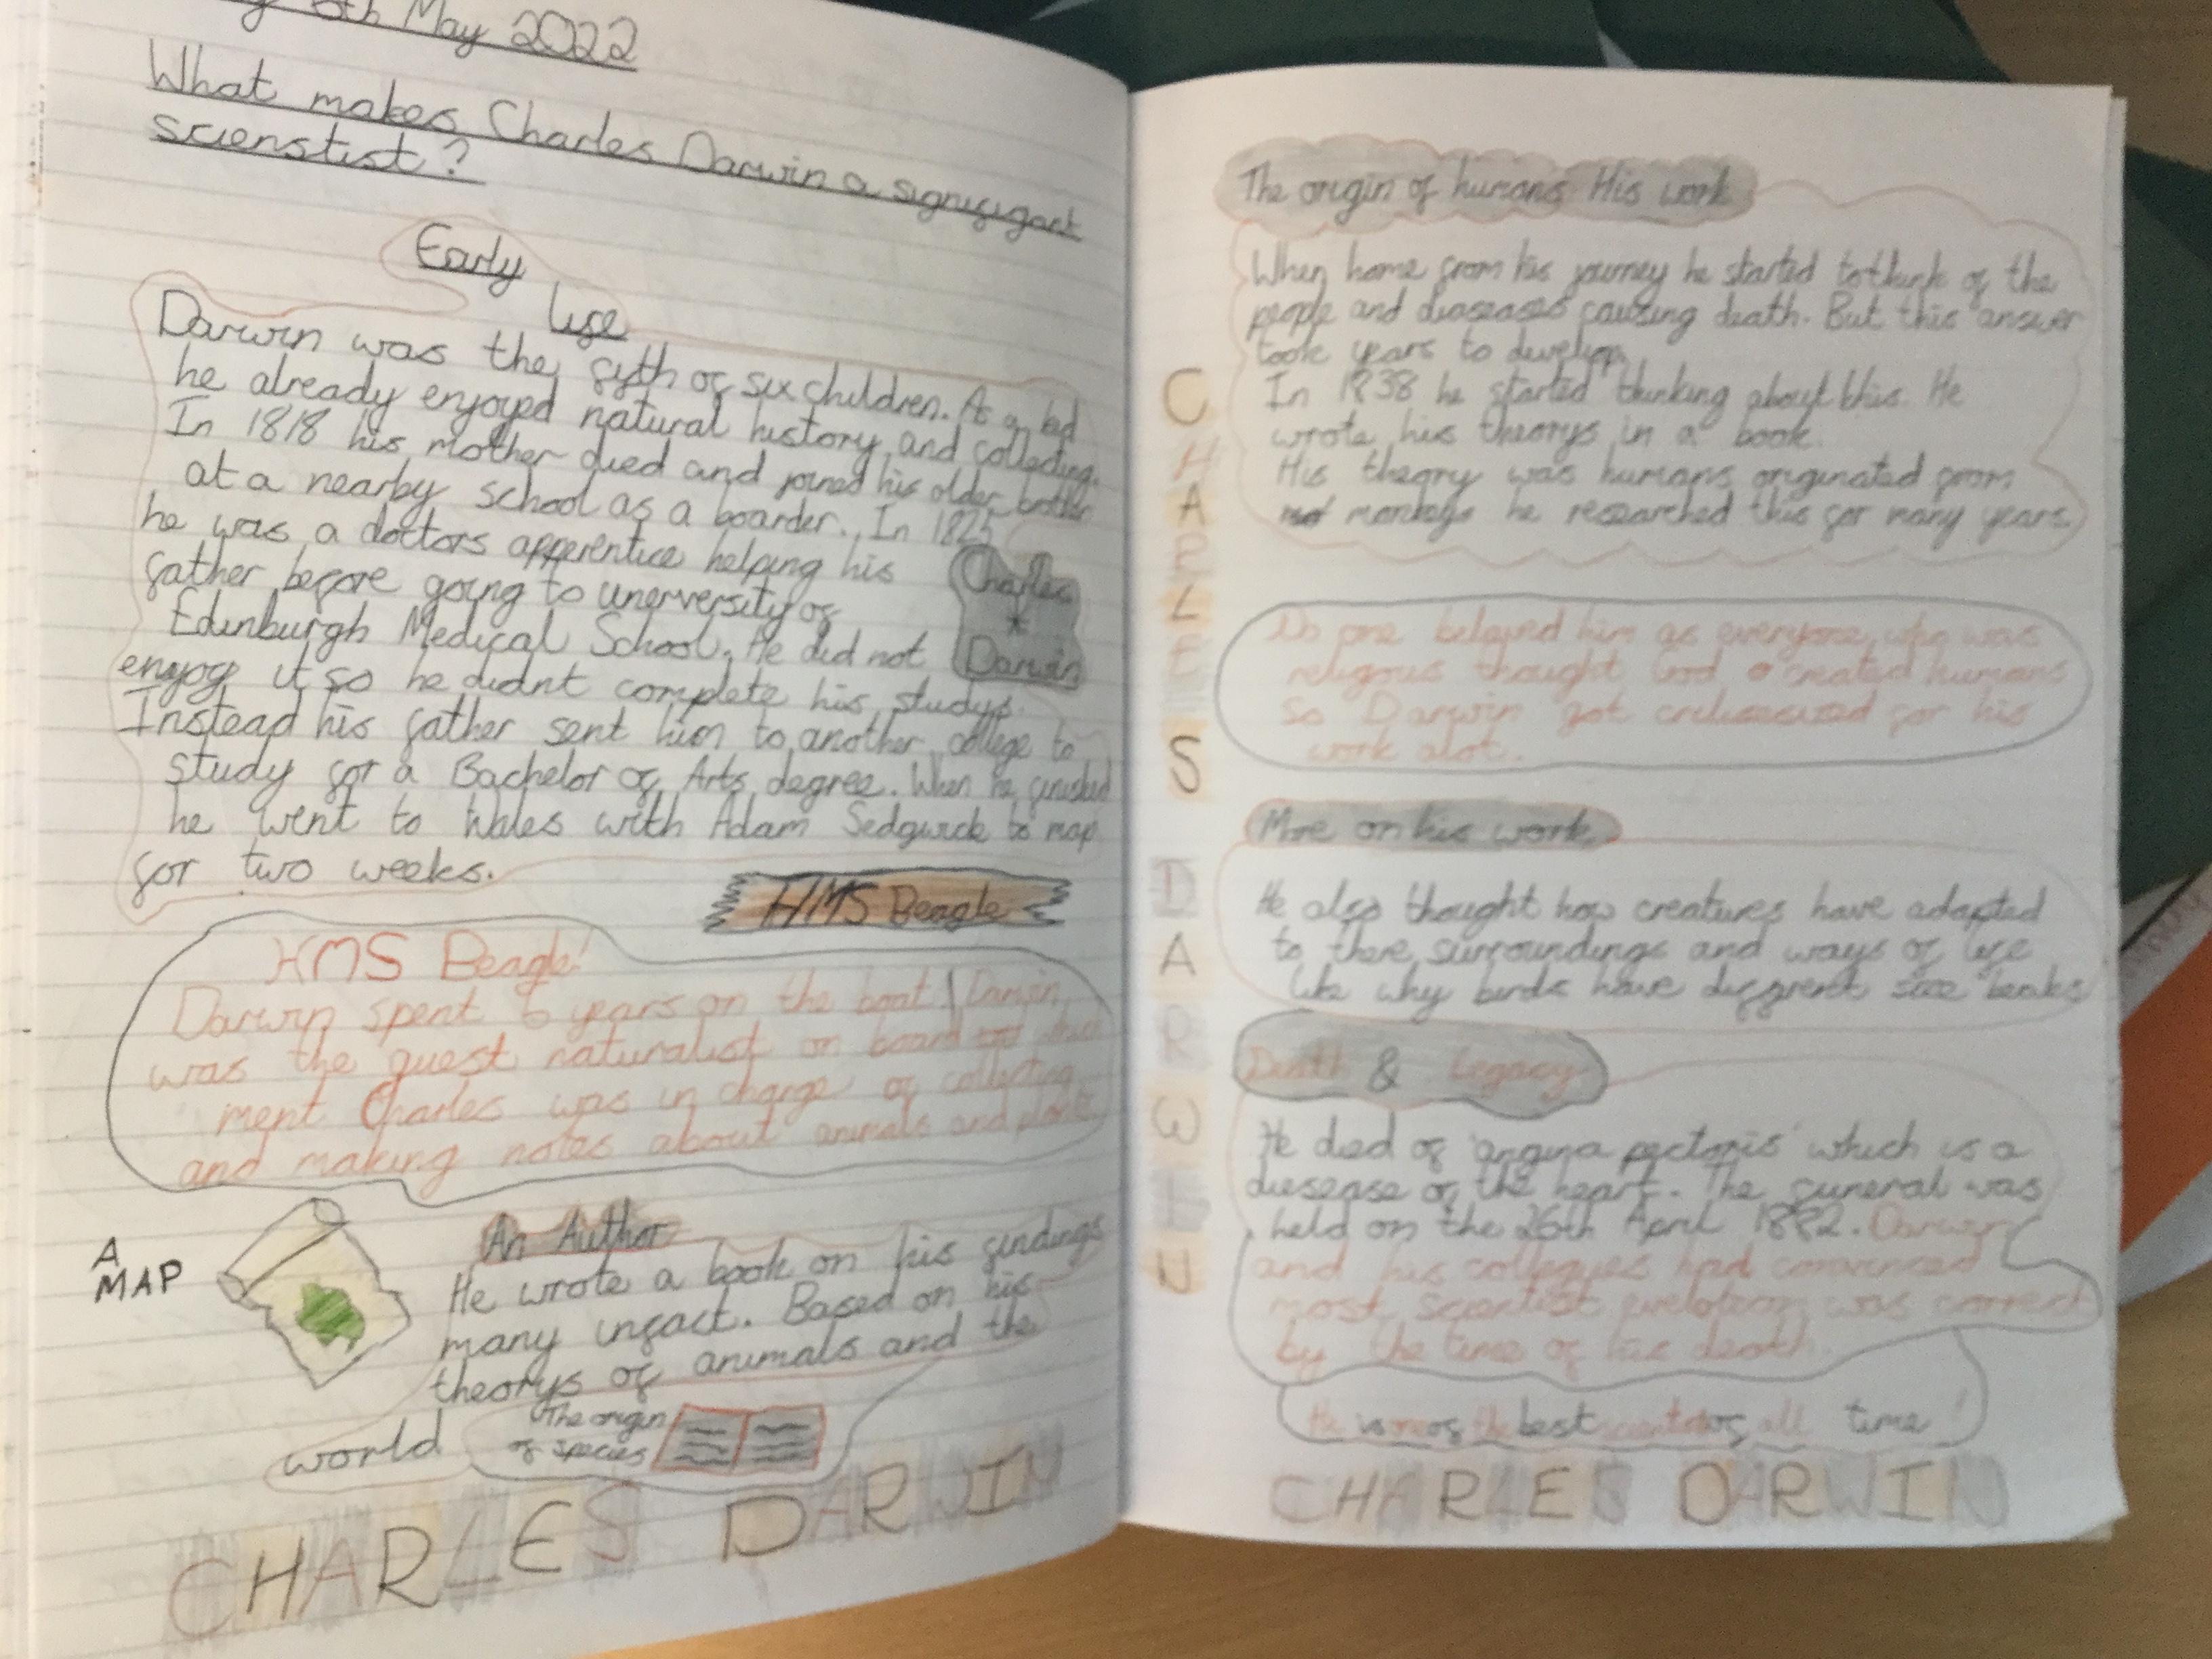 6th May 2022
What makes Charles Darwin a signifigant
scienstist?
Early
Life
Darwin was the fyth of six children. As a lad
he already enjoyed natural history and collecting.
In 1818 his mother died and joined his older brother
at a nearby school as a boarder. In 1825
he was a doctors apperentice helping his
father before going to unerversity of
Edinburgh Medical School. He did not
enyoy it so he didnt complete his studys.
Instead his father sent him to another college to
study for a Bachelor of Arts degree. When he finished
he went to Wales with Adam Sedgwick to map
for two weeks.
Charles
*
Darwin
HMS Beagle
HMS Beagle!
Darwin spent 5 years on the boat Darwin
was the guest naturalist on board which
ment Charles was in charge of collecting
and making notes about animals and plants
A
MAP
An Author
He wrote a book on his findings
many infact. Based on his
theorys of animals and the
world
The origin
of species
CHARLES DARWIN
CHARLES
DARWIN
The origin of humans His work
When home from his journey he started to think of the
people and diaseases causing death. But this answer
took years to develop.
In 1838 he started thinking about this. He
wrote his theorys in a book.
His theory was humans originated from
monkeys he researched this for many years.
No one belayed him as everyone who was
religious thought God created humans
so Darwin got for his
work alot.
More on his work.
He also thought how creatures have adapted
to there surroundings and ways of life
like why birds have diffrent size beaks
Death & Legacy
He died of 'angina pectoris' which is a
diesease of the heart. The funeral was
held on the 26th April 1882. Darwin
and his collegues had convinced
most scientist was correct
by the time of his death.
He is one of the best of all time!
CHARLES DARWIN